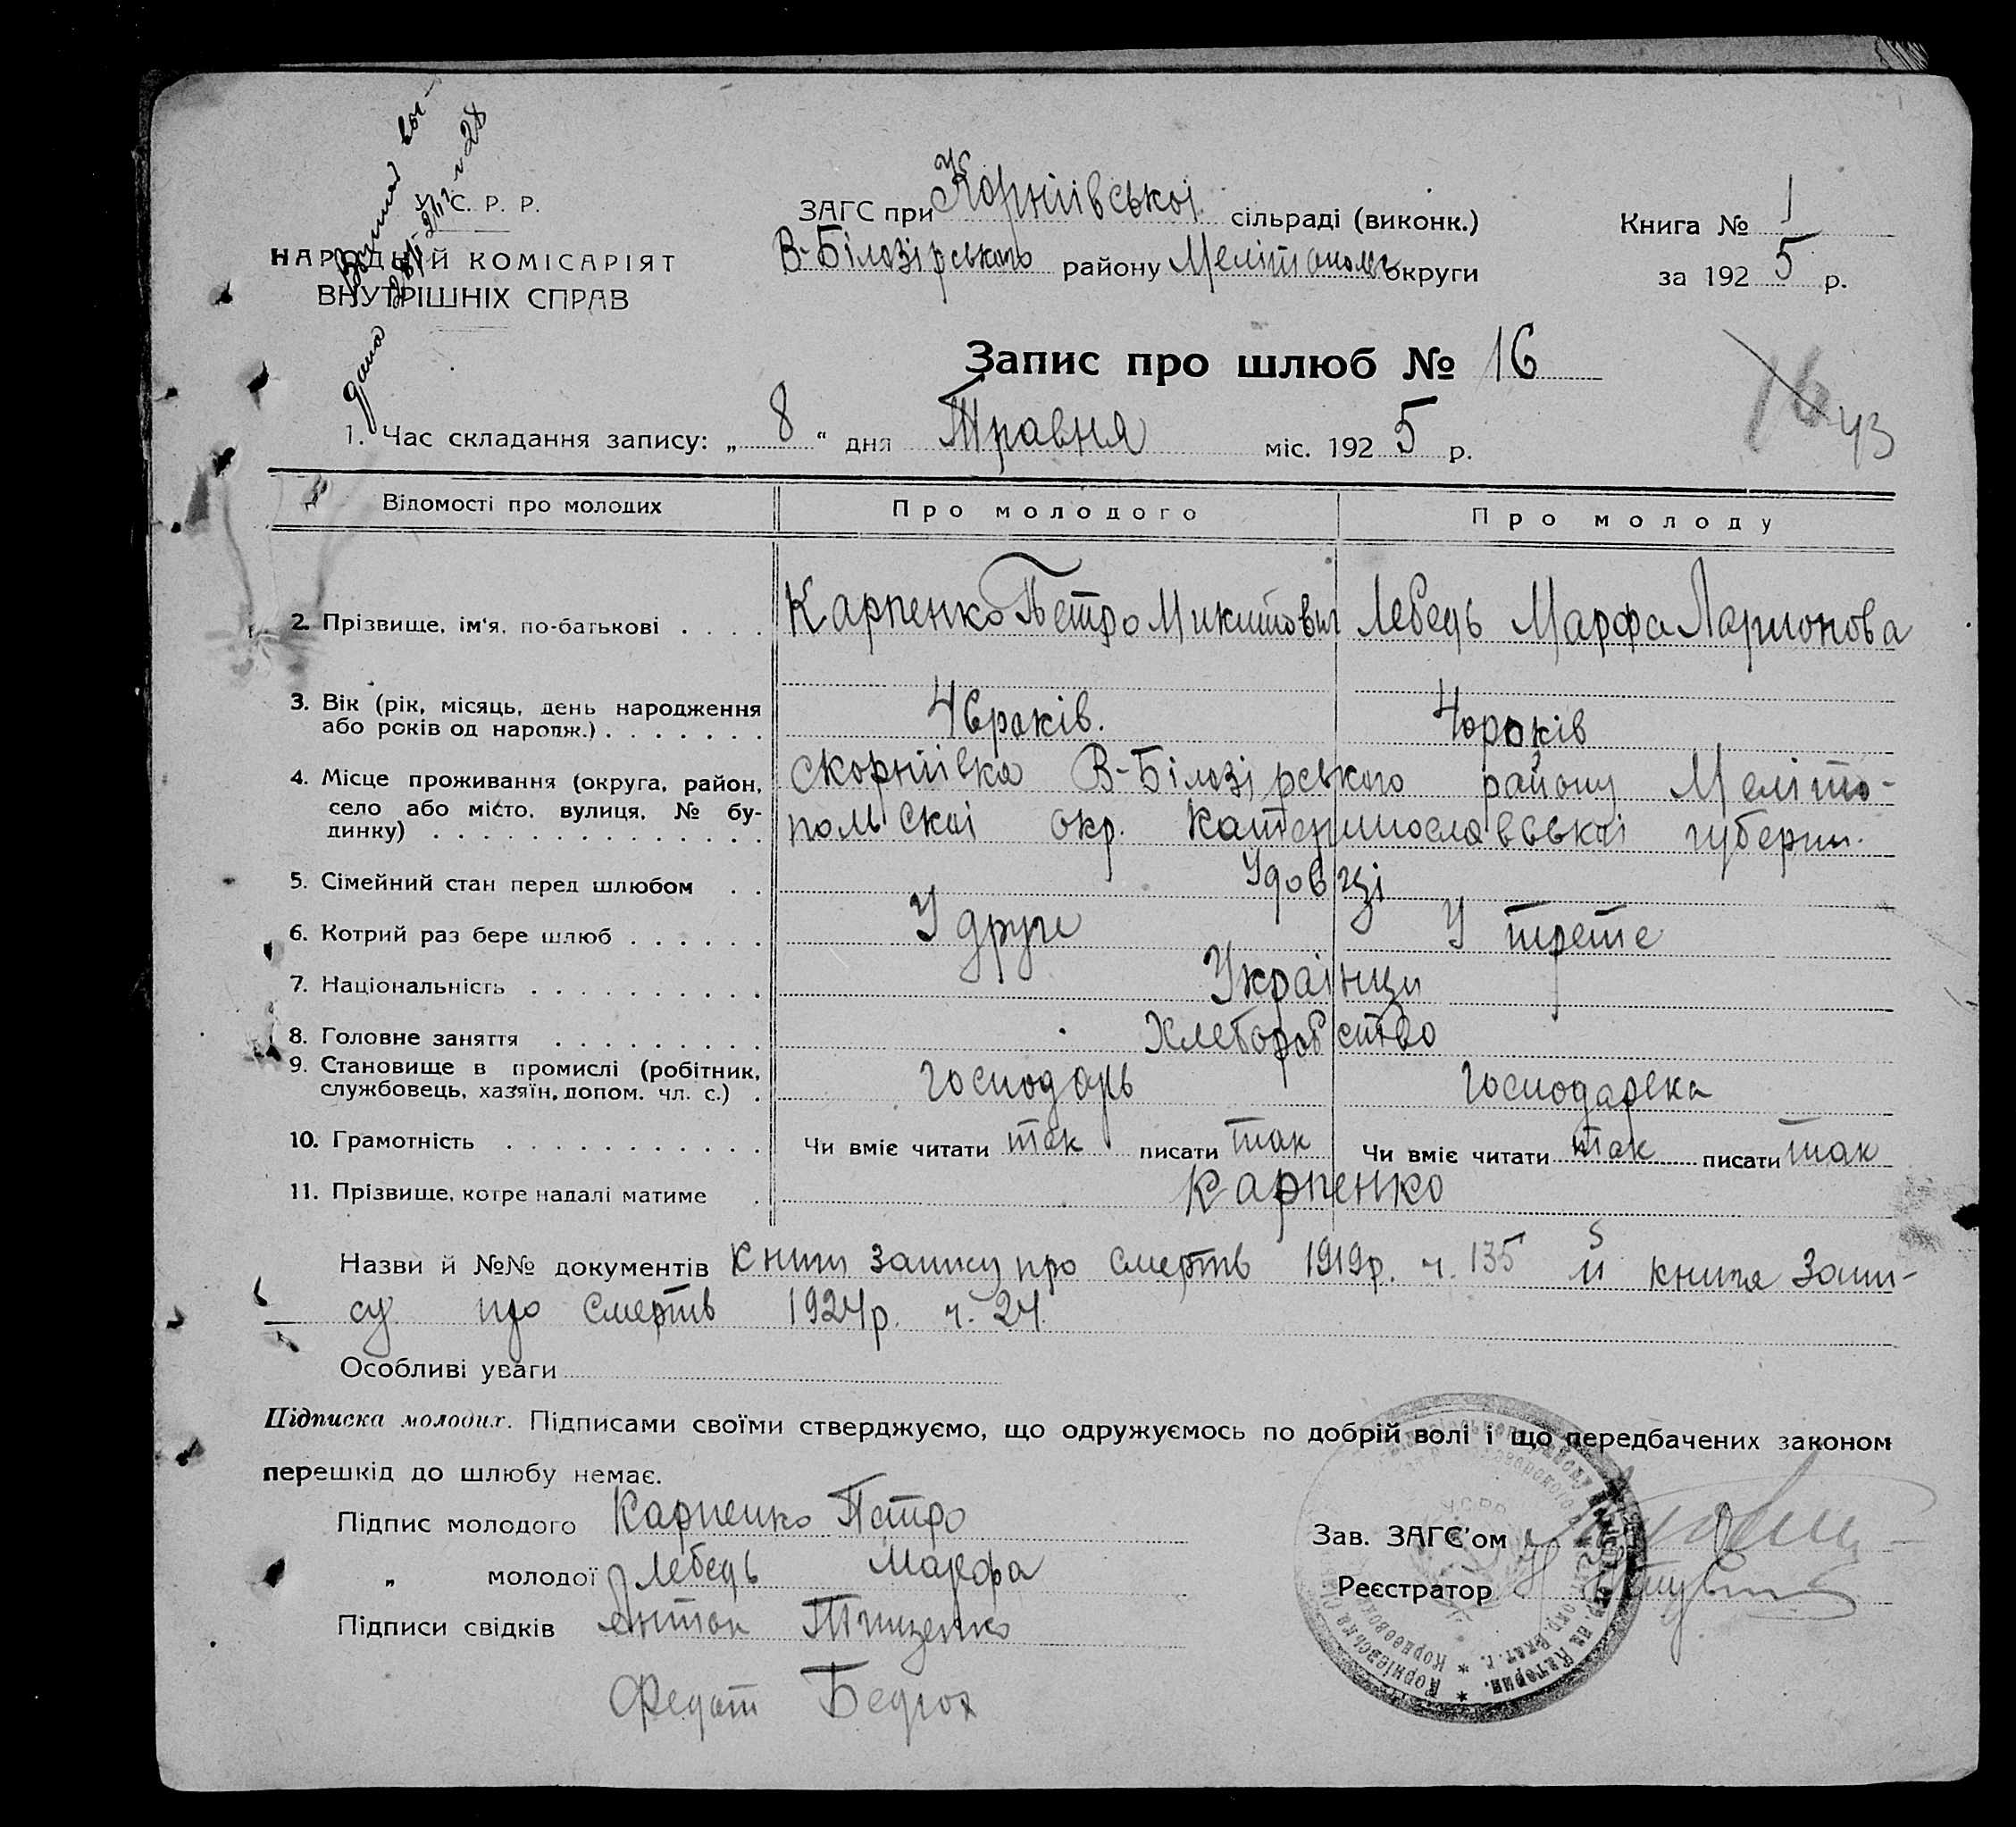 У. С. Р. Р.
НАРОДНІЙ КОМІСАРІЯТ
ВНУТРІШНІХ СПРАВ
ЗАГС при Корніівської сільраді (виконк.)
В-Білозірського району Мелітополь округи
Книга № 1
за 1925 р.
Запис про шлюб № 16
16 43
1. Час складання запису: „8“ дня Травня міс. 1925 р.
Відомості про молодих Про молодого Про молоду
2. Прізвище, ім'я, по-батькові . . . . Карпенко Петро Микитович Лебедь Марфа Ларионова
3. Вік (рік, місяць, день народження
або років од народж.) . . . . . . . 46 років. 40 років
4. Місце проживання (округа, район, с Корніівка В-Білозірського району Меліто-
село або місто, вулиця, № бу-
динку) . . . . . . . . . . . . . польскоі окр. Катеринославськоі губерни.
5. Сімейний стан перед шлюбом . . Удовці
6. Котрий раз бере шлюб . . . . . . У друге У трете
7. Національність . . . . . . . . . . Украінци
8. Головне заняття . . . . . . . . . Хлеборобство
9. Становище в промислі (робітник,
службовець, хазяїн, допом. чл. с.) . Господарь Господарка
10. Грамотність . . . . . . . . . . . Чи вміє читати так писати так Чи вміє читати так писати так
11. Прізвище, котре надалі матиме . Карпенко
Назви й №№ документів книги запису про смерть 1919р. ч. 135 й книга запи-
су про смерть 1924р. ч. 24
Особливі уваги
Підписка молодих. Підписами своїми стверджуємо, що одружуємось по добрій волі і що передбачених законом
перешкід до шлюбу немає.
Підпис молодого Карпенко Петро
„ молодої Лебедь Марфа
Підписи свідків Антон Тищенко
Федот
Зав. ЗАГС'ом
Реєстратор